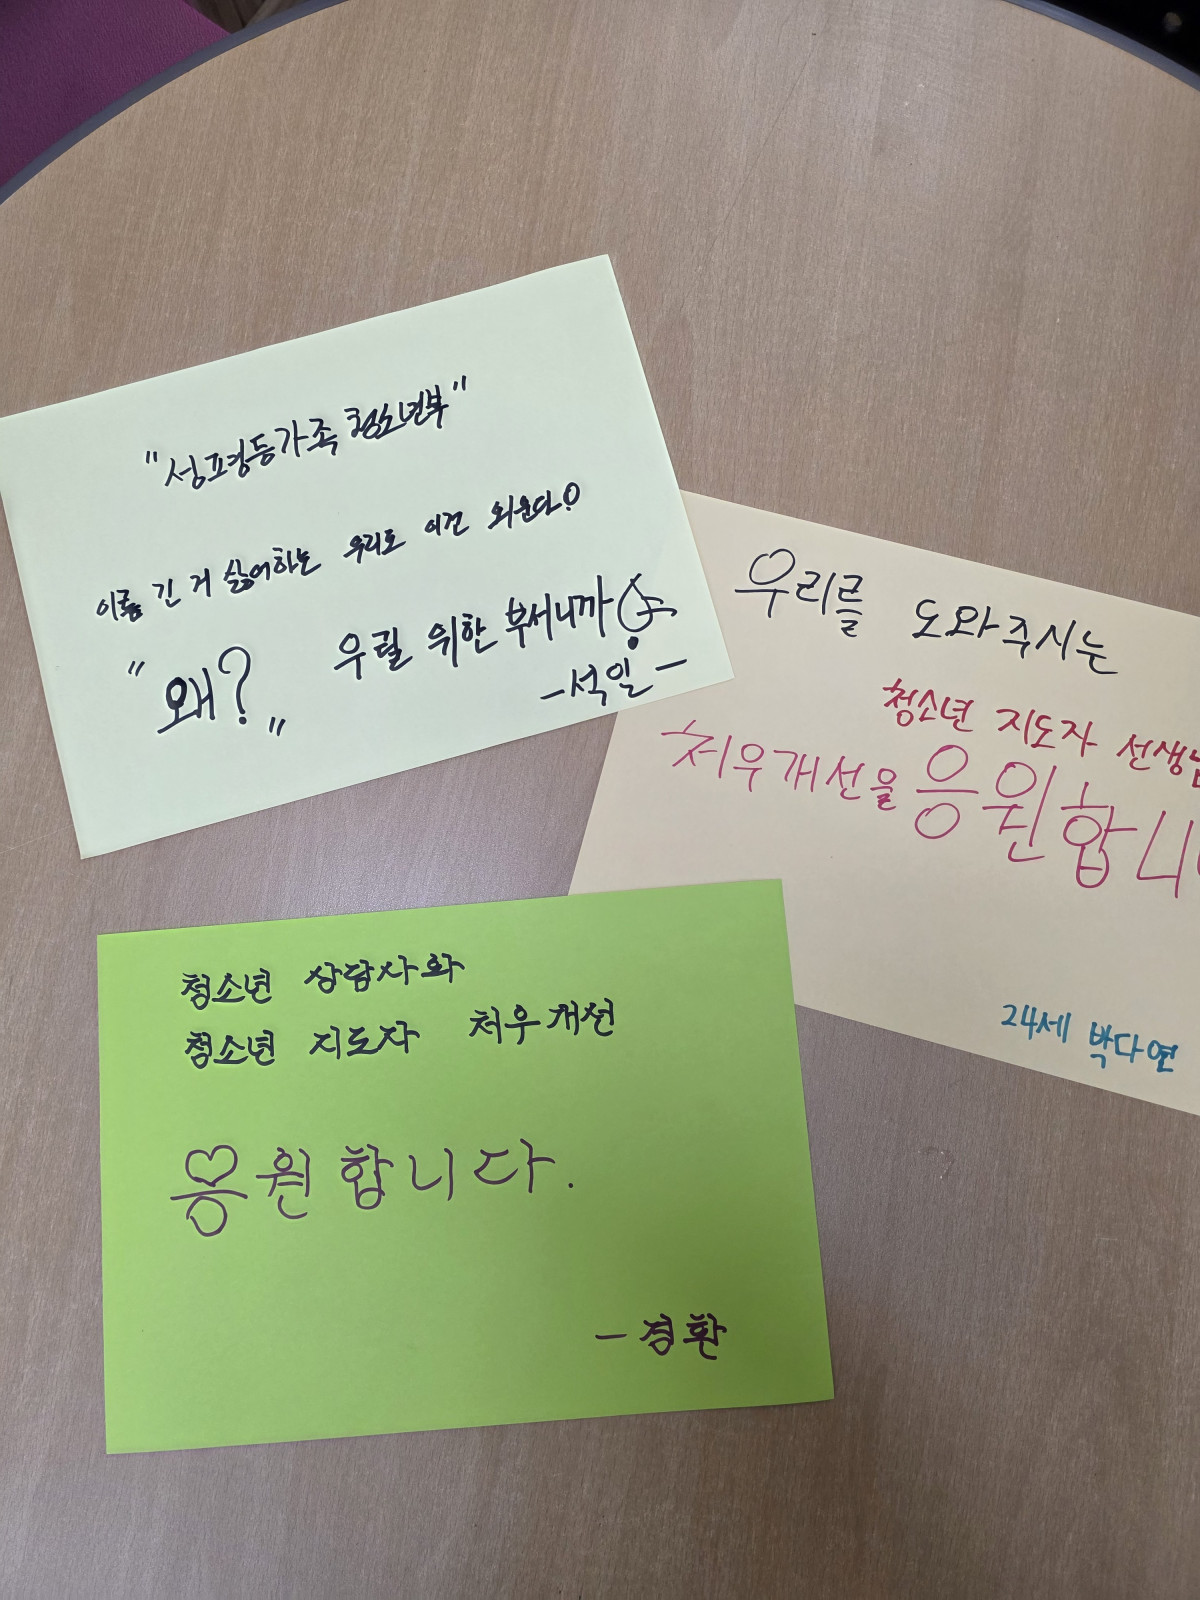 "성평등가족청소년부"
이름 긴 거 싫어하는 우리도 이건 외운다!
"왜?" 우릴 위한 부서니까!
-석일-
우리를 도와주시는
청소년 지도자 선생님
처우개선을 응원합니
24세 박다연
청소년 상담사와
청소년 지도자 처우개선
응원합니다.
-경환